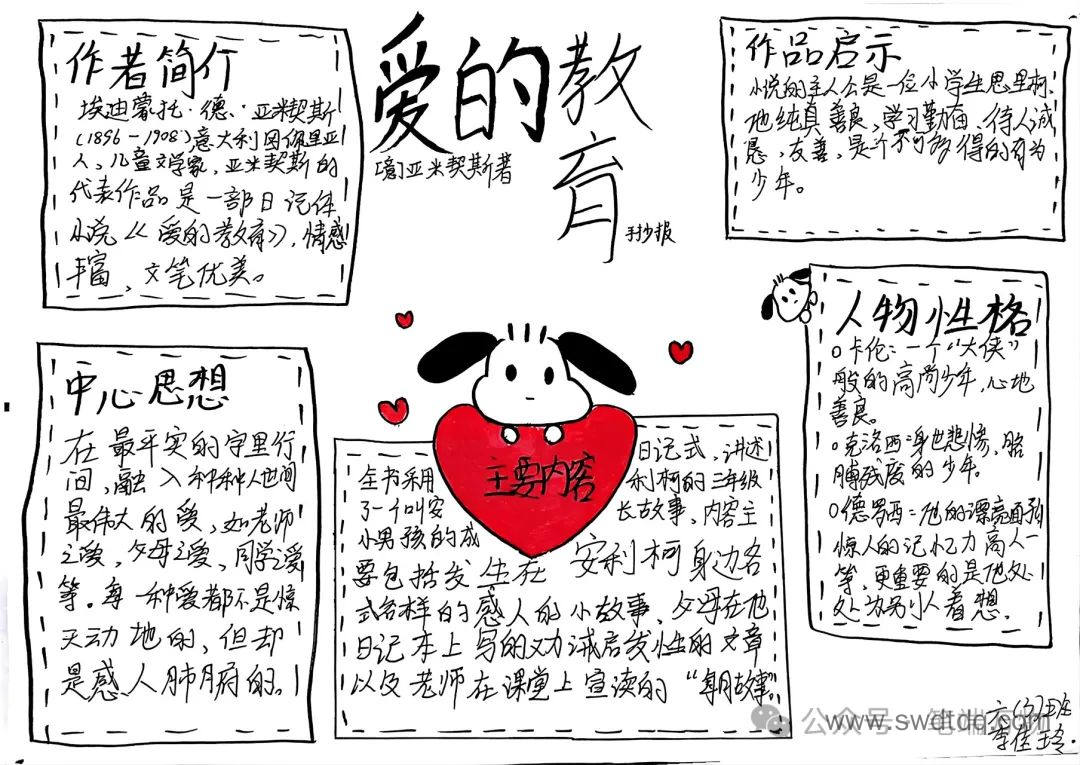 爱的教育
[意]亚米契斯著
手抄报
作者简介
埃迪蒙托·德·亚米契斯
(1896-1908)意大利国佩里亚
人,儿童文学家,亚米契斯的
代表作品是一部日记体
小说《爱的教育》,情感
丰富、文笔优美。
作品启示
小说的主人公是一位小学生思里柯.
他纯真善良,学习勤奋、待人诚
恳,友善,是个不可多得的有为
少年。
人物性格
卡伦:一个“大侠”
般的高尚少年,心地
善良。
克洛西:身世悲惨,胳
膊残废的少年。
德罗西:他的漂亮面孔
惊人的记忆力高人一
等,更重要的是他处
处为别人着想.
中心思想
在最平实的字里行
间,融入种种人世间
最伟大的爱,如老师
之爱,父母之爱,同学之爱
等。每一种爱都不是惊
天动地的,但却
是感人肺腑的。
主要内容
全书采用日记式,讲述
了一个叫安利柯的三年级
小男孩的成长故事,内容主
要包括发生在安利柯身边各
式各样的感人的小故事、父母在他
日记本上写的劝诫启发性的文章
以及老师在课堂上宣读的“每月故事”。
六(3)班
李佳玲.
公众号
www.swdtdq.com